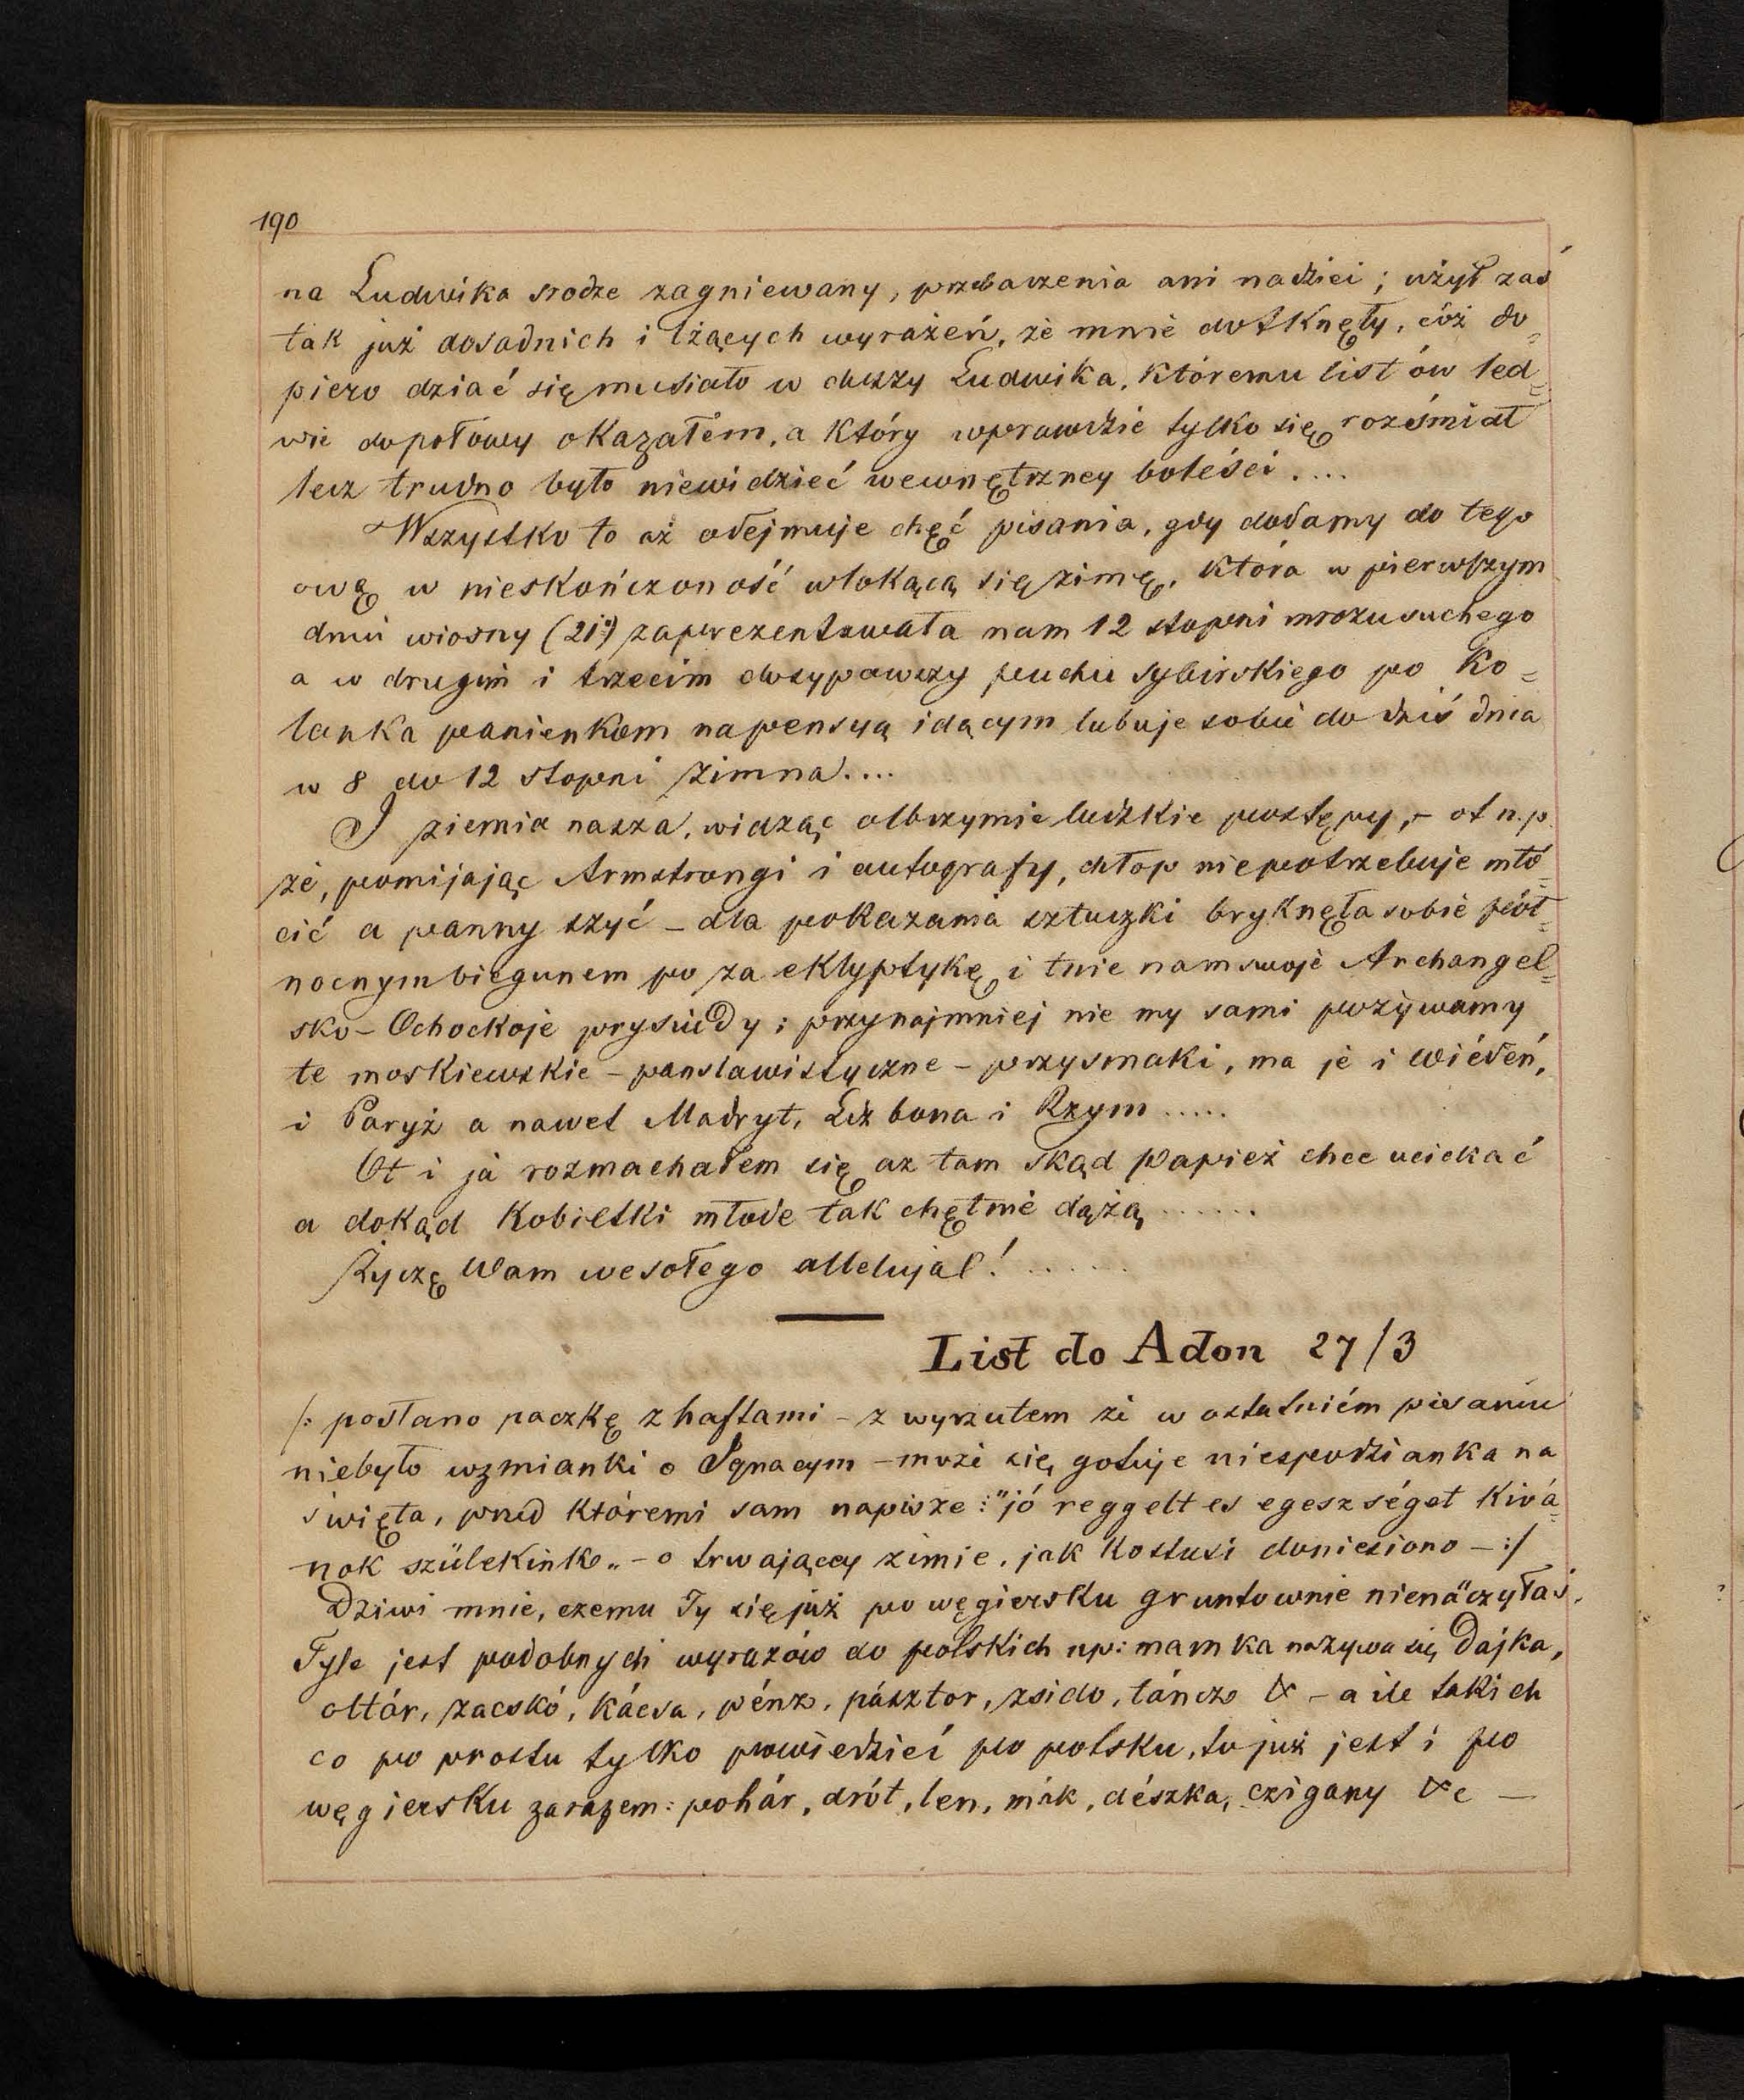 190
na Ludwika srodze zagniewany, przebaczenia ani nadziei; użył zaś
tak już dosadnich i lżących wyrażeń, że mnie dotknęły, cóż do=
piero dziać się musiało w duszy Ludwika, któremu list ów led=
wie dopołowy okazałem, a który wprawdzie tylko się rozśmiał
lecz trudno było niewidzieć wewnętrzney boleści....
Wszystko to aż odejmuje chęć pisania, gdy dodamy do tego
ową w nieskończoność wlokącą się zimę, która w pierwszym
dniu wiosny (21º) zaprezentowała nam 12 stopni mrozu suchego
a w drugim i trzecim dosypawszy puchu sybirskiego po ko=
lanka panienkom na pensyą idącym lubuje sobie do dziś dnia
w 8 do 12 stopni zimna....
I ziemia nasza, widząc olbrzymie ludzkie postępy, - ot n.p.
że, pomijając Armstrongi i autografy, chłop niepotrzebuje młó=
cić a panny szyć - dla pokazania sztuczki bryknęła sobie pół=
nocnym biegunem po za eklyptykę i tnie nam swoje Archangel=
sko - Ochockoje prysiudy; przynajmniej nie my sami pożywamy
te moskiewskie - panslawistyczne - przysmaki, ma je i Wiédeń,
i Paryż a nawet Madryt, Lizbona i Rzym.....
Ot i ja rozmachałem się aż tam skąd Papież chce uciekać
a dokąd Kobietki młode tak chętnie dążą......
Życzę Wam wesołego allelujał!......
List do Adon 27/3
/: posłano paczkę z haftami - z wyrzutem że w ostatniém pisaniu
niebyło wzmianki o Ignacym - może się gotuje niespodzianka na
święta, przed któremi sam napisze: "jó reggelt es egeszséget kivá=
nok szülekinke„ - o trwającey zimie, jak Kostusi doniesiono - :/
Dziwi mnie, czemu Ty się już po węgiersku gruntownie nienauczyłaś.
Tyle jest podobnych wyrazów do polskich np: mamka nazywa się Dajka,
oltár, zacskó, kácsa, pénz, pásztor, zsido, táncz & - a ile takich
co po prostu tylko powiedzieć po polsku, to już jest i po
węgiersku zarazem: pohár, drót, len, mák, dészka, czigany &c -